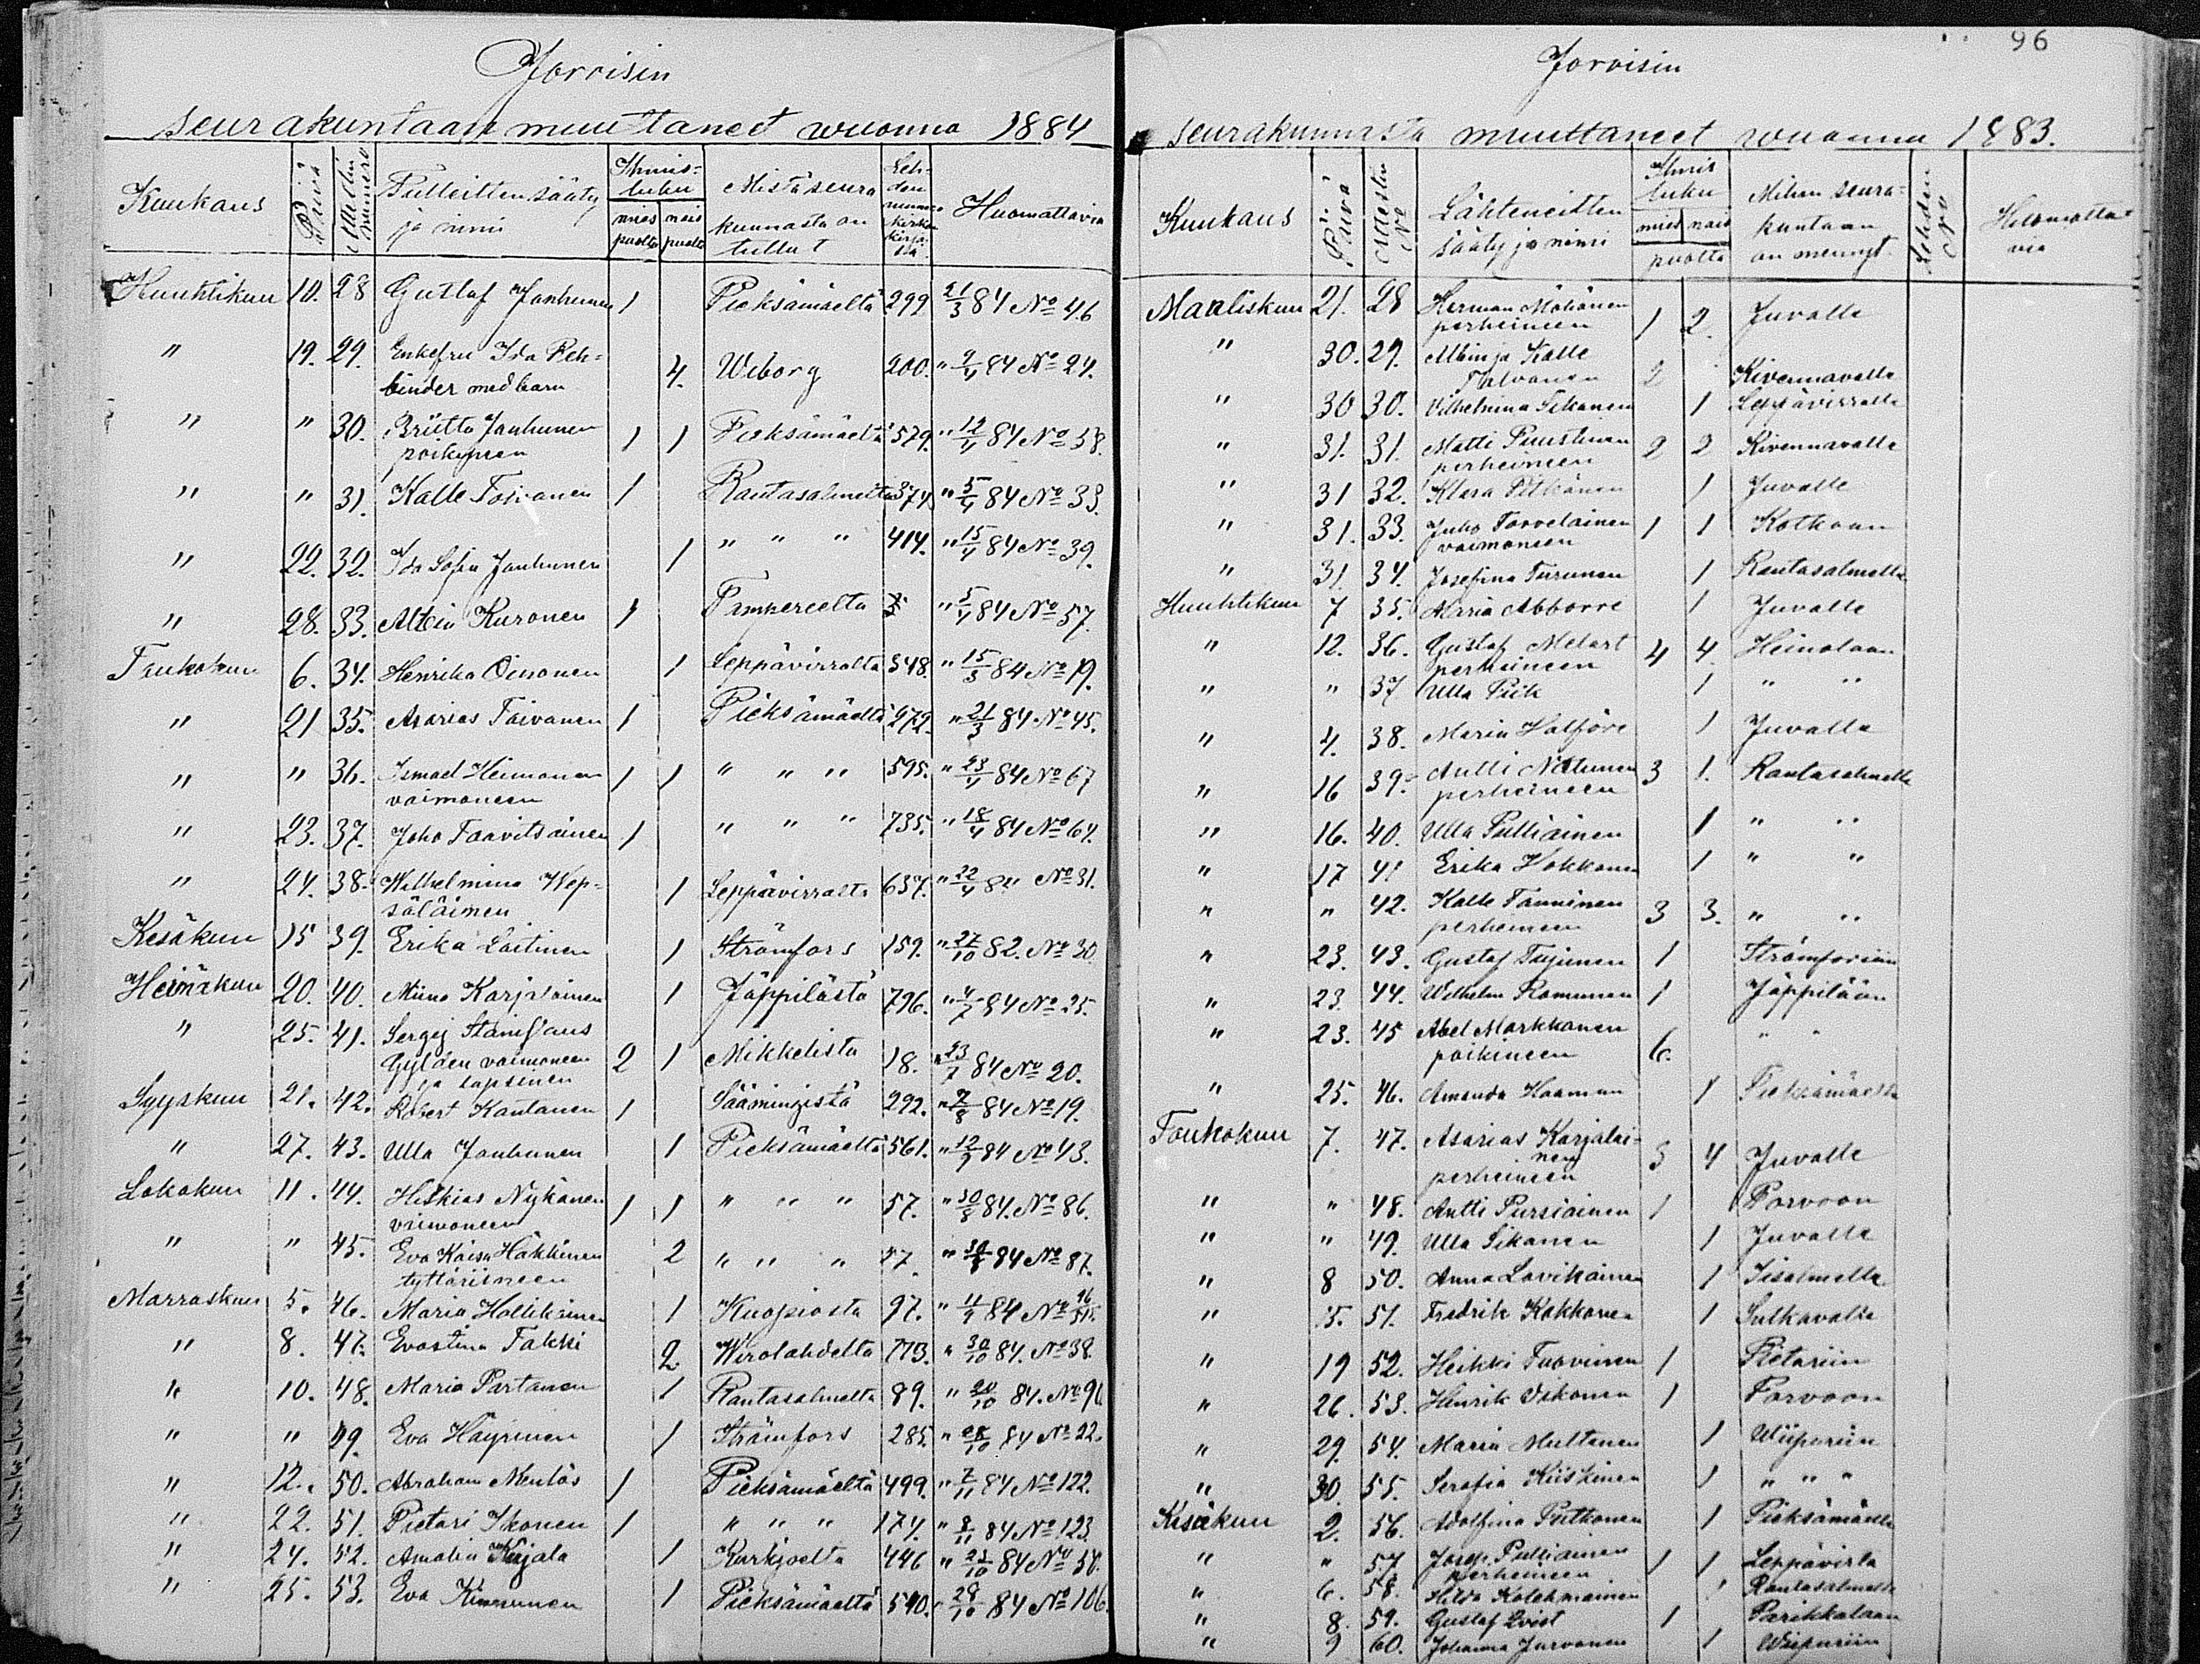 Jorvisin
seurakuntaan muuttaneet wuonna 1884
Kuukaus Päivä Attestin numero Tulleitten sääty ja nimi Ihmis-luku mies puolta nais puolta Mistä seurakunnasta on tullut Lehden numero kirkonkirjassa Huomattavia
Huuhtikuu 10. 28 Gustaf Janhunen 1 Pieksämäeltä 299 21/3 84 No 46
" 19. 29. Enkefru Ida Reh-
binder med barn 4. Wiborg 200. " 9/4 84 No 24.
" " 30. Briitta Janhunen
poikineen 1 1 Pieksämäeltä 579. " 12/4 84 No 58.
" " 31. Kalle Toivanen 1 Rantasalmelta 374 " 5/4 84 No 33.
" 22. 32. Ida Sofia Janhunen 1 " " " 414. " 15/4 84 No 39.
" 28. 33. Albin Kuronen 1 Tampereelta " 5/4 84 No 57.
Toukokuu 6. 34. Henrika Oinonen 1 Leppävirralta 548. " 15/3 84 No 19.
" 21 35. Asarias Toivanen 1 Pieksämäeltä 272. " 21/3 84 No 45.
" " 36. Ismael Heimonen
vaimoneen 1 1 " " " 595. " 23/4 84 No 67
" 23. 37. Joho Taavitsainen 1 " " " 735. " 18/4 84 No 64.
" 24. 38. Wilhelmina Wep-
säläinen 1 Leppävirralta 637. " 22/4 84 No 31.
Kesäkuu 15 39. Erika Laitinen 1 Strömfors 159. " 27/10 82. No 30
Heinäkuu 20. 40. Miina Karjalainen 1 Jäppilästä 796. " 4/7 84 No 25.
" 25. 41. Sergej Stanislaus
Gylden vaimoneen
ja lapsineen 2 1 Mikkelistä 18. " 23/7 84 No 20.
Syyskuu 21. 42. Robert Kantanen 1 Säämingistä 292. " 9/8 84 No 19.
" 27. 43. Ulla Janhunen 1 Pieksämäeltä 561. " 12/9 84 No 43.
Lokakuu 11. 44. Heskias Nykänen
vaimoneen 1 1 " " " 57. " 30/8 84. No 86.
" " 45. Eva Kaisa Häkkinen
tyttärineen 2 " " " 47 " 84 No 87.
Marraskuu 5. 46. Maria Hollikainen 1 Kuopiosta 97. " 11/9 84 No
" 8. 47. Evastina Takki 2 Wirolahdelta 773. " 30/10 84. No 38.
" 10. 48. Maria Partanen 1 Rantasalmelta 89. " 20/10 84. No 90
" " 49. Eva Häyrinen 1 Strömfors 285. " 28/10 84 No 22.
" 12. 50. Abraham Nenlös 1 Pieksämäeltä 499. " 7/11 84 No 122.
" 22. 51. Pietari Ikonen 1 " " " 174. " 8/11 84 No 123
" 24. 52. Amalia Kujala 1 Kurkijoelta 446 " 23/10 84 No 58.
" 25. 53. Eva Kinnunen 1 Pieksämäeltä 590. " 29/10 84 No 106.
96
Jorvisin
seurakunnasta muuttaneet vuonna 1883.
Kuukaus Päivä Attestin No Lähteneitten sääty ja nimi Ihmis luku mies nais puolta Mihin seurakuntaan on mennyt Lehden No Huomattavia
Maaliskuu 21. 28 Herman Mähönen
perheineen 1 2. Juvalle
" 30. 29. Albin ja Kalle
Tolvanen 2 Kivennavalle
" 30 30. Vilhelmina Sikanen 1 Leppävirralle
" 31. 31. Matti Puustinen
perheineen 2 2 Kivennavalle
" 31 32. Klara Pitkänen 1 Juvalle
" 31. 33. Juho Torvelainen
vaimoneen 1 1 Kotkaan
" 31. 34. Josefina Turunen 1 Rantasalmelle
Huuhtikuu 7 35. Maria Abborre 1 Juvalle
" 12. 36. Gustaf Melart
perheineen 4 4. Heinolaan
" " 37 Ulla Pick 1 " "
" 4. 38. Maria Halföre 1 Juvalle
" 16 39. Antti Natunen
perheineen 3 1. Rantasalmelle
" 16. 40. Ulla Pulliainen 1 " "
" 17 41 Erika Hokkanen 1 " "
" " 42. Kalle Tanninen
perheineen 3 3. " "
" 23. 43. Gustaf Tiijunen 1 Strömforsiin
" 23. 44. Wilhelm Romunen 1 Jäppilään
" 23. 45 Abel Markkanen
poikineen 6. " "
" 25. 46. Amanda Haaman 1 Pieksämäelle
Toukokuu 7. 47. Asarias Karjalai-
nen
perheineen 5 4 Juvalle
" " 48. Antti Pursiainen 1 Porvoon
" " 49. Ulla Sikanen 1 Juvalle
" 8 50. Anna Lavikainen 1 Iisalmelle
" 15. 51. Fredrik Kokkonen 1 Sulkavalle
" 19 52. Heikki Tuovinen 1 Pietariin
" 26. 53. Henrik Väkonen 1 Porvoon
" 29. 54. Maria Multanen 1 Wiipuriin
" 30. 55. Serafia Kiiskinen 1 " " "
Kesäkuu 2. 56. Adolfina Putkonen 1 Pieksämäelle
" " 57 Josep Pulliainen
perheineen 1 1 Leppävirta
" 6. 58. Hilda Kolehmainen 1 Rantasalmelle
" 8. 59. Gustaf Qvist 1 Parikkalaan
" 9 60. Johanna Jurvanen 1 Wiipuriin